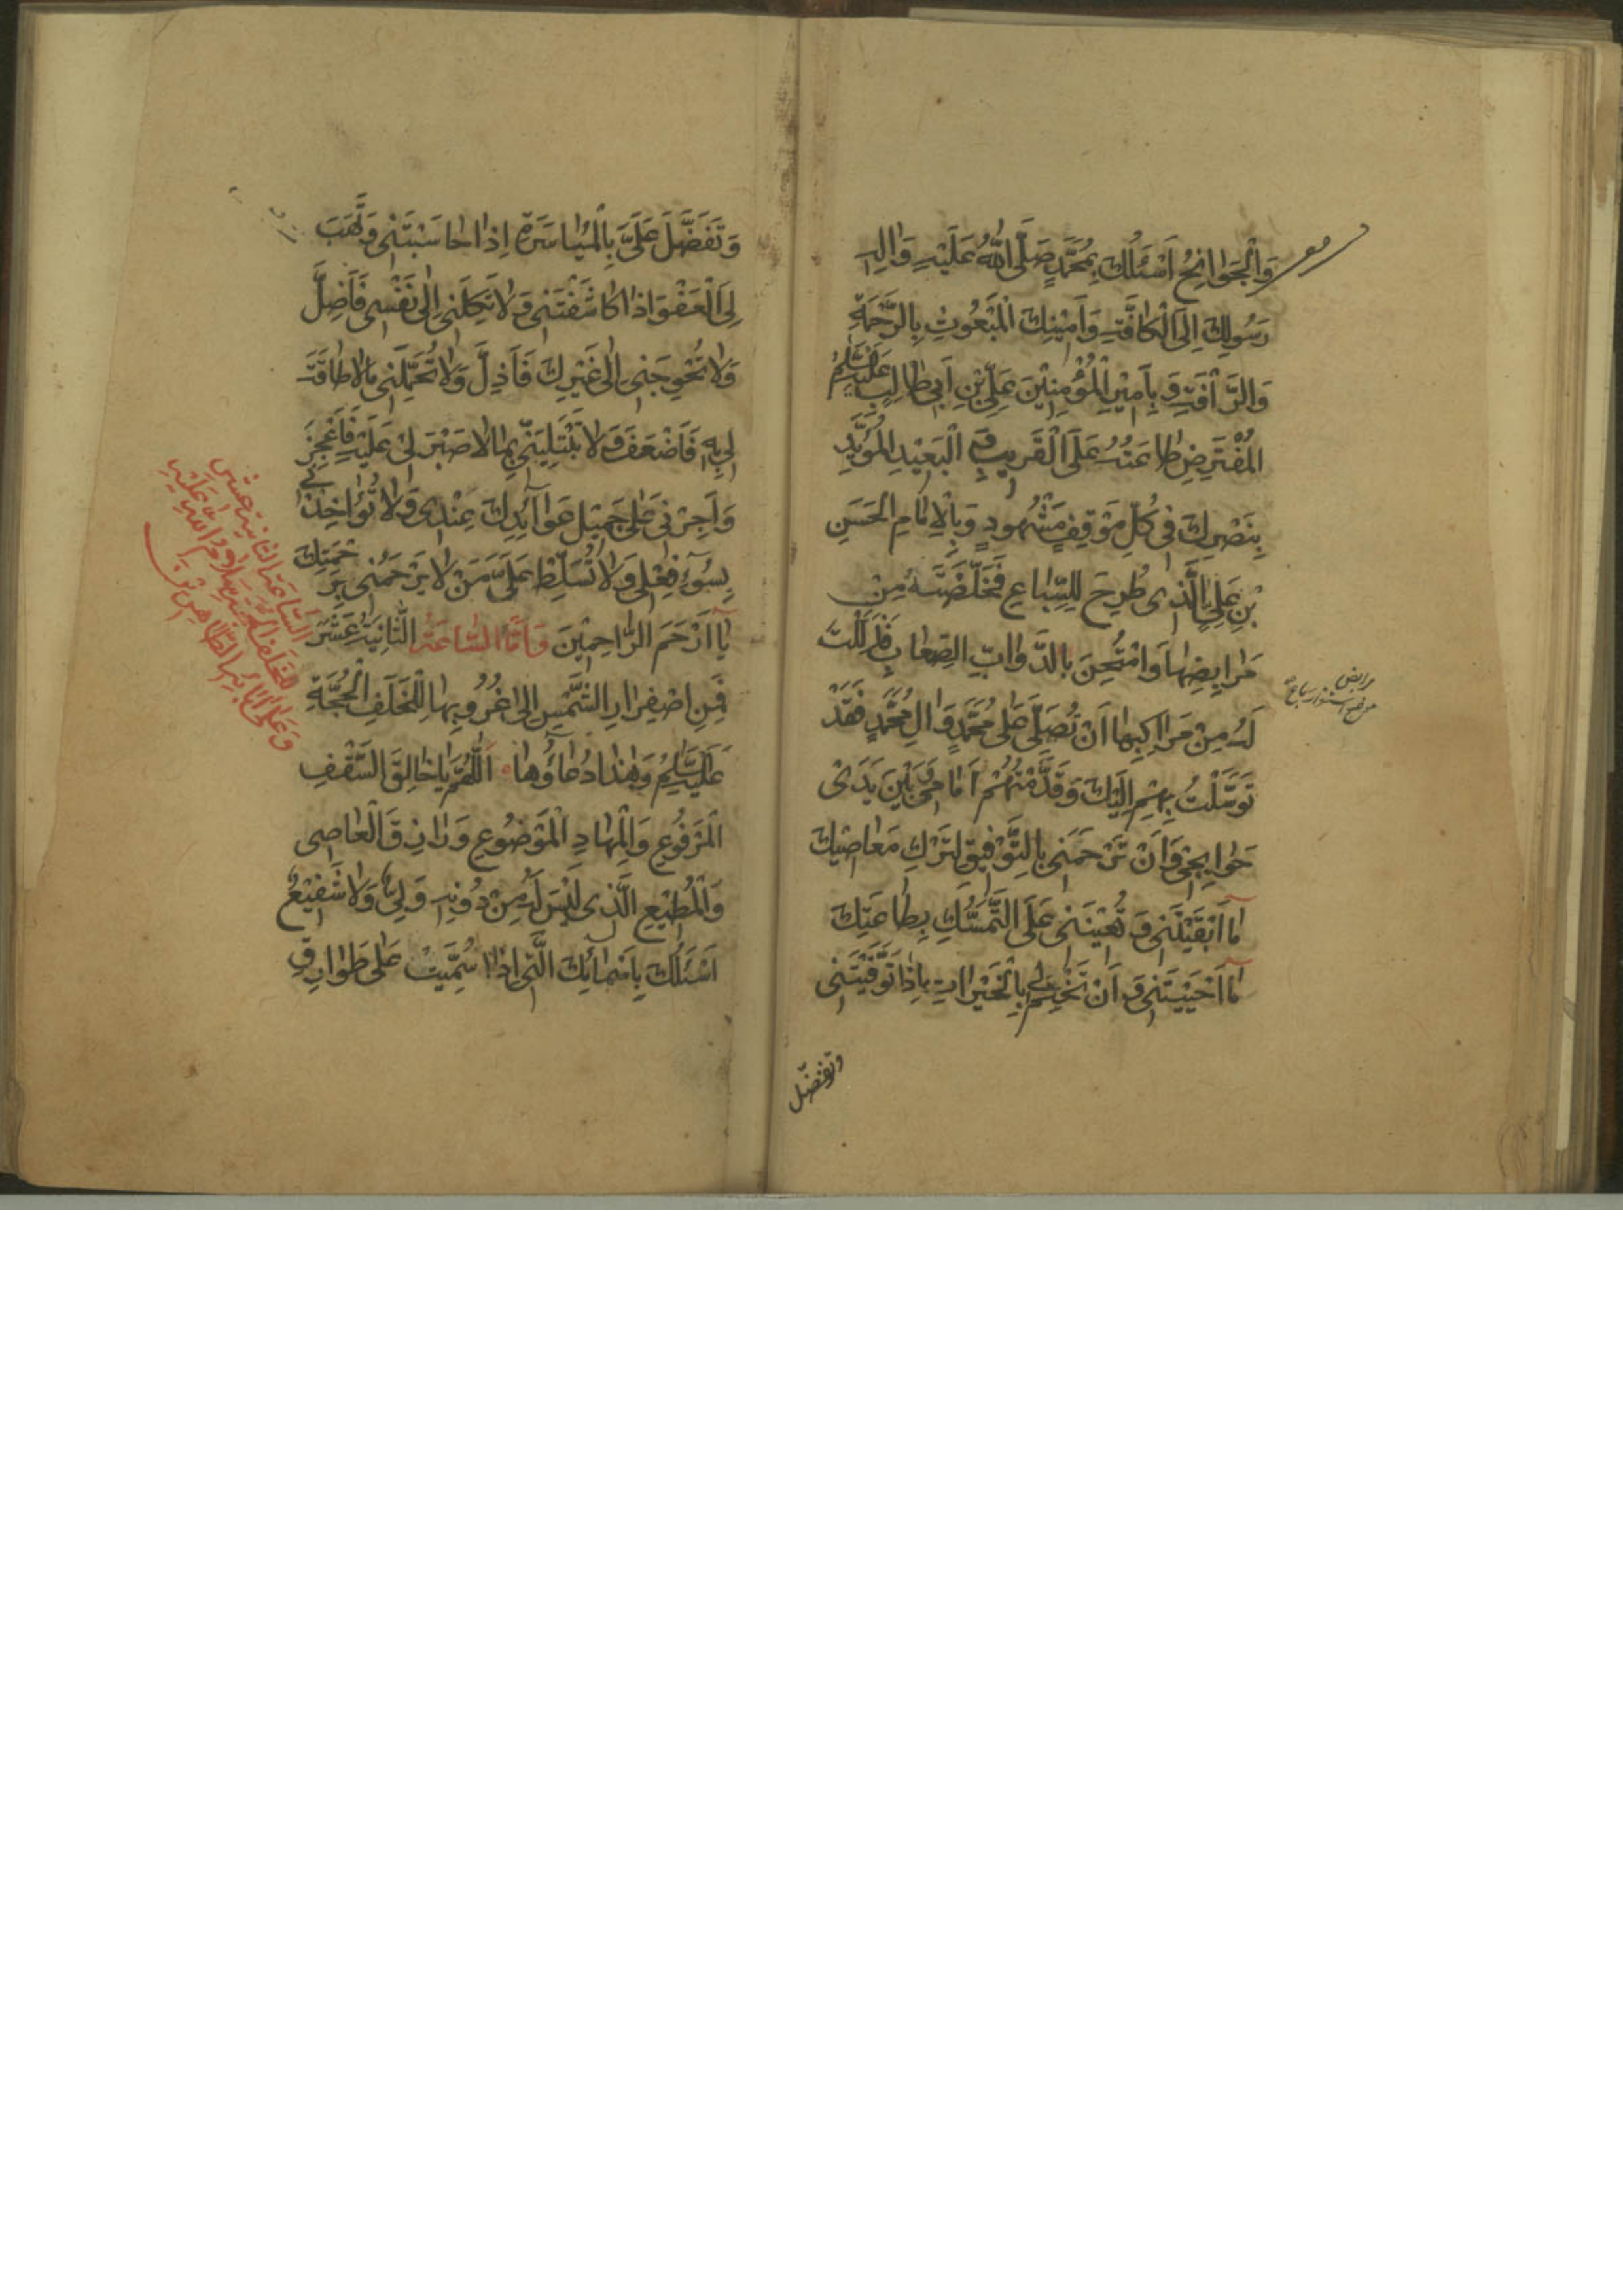 وَالْجَوٰانِحُ اَسْئَلُكَ بِمُحَمَّدٍ صَلَّى اللّٰهُ عَلَيْهِ وَاٰلِهِ
رَسُولِكَ اِلَى الْكٰافَّةِ وَاَمِيْنِكَ الْمَبْعُوثِ بِالرَّحْمَةِ
وَالرَّأْفَةِ وَ بِاَمِيْرِ الْمُؤْمِنِيْنَ عَلِيِّ بْنِ اَبِى طٰالِبٍ عَلَيْهِ السَّلٰمُ
الْمُفْتَرِضِ طٰاعَتُهُ عَلَى الْقَرِيبِ وَ الْبَعِيْدِ الْمُؤَيَّدِ
بِنَصْرِكَ فِى كُلِّ مَوْقِفٍ مَشْهُودٍ وَبِالْاِمٰامِ الْحَسَنِ
بْنِ عَلِيٍّ الَّذِى طُرِحَ لِلسِّبٰاعِ فَخَلَّصْتَهُ مِنْ
مَرٰابِضِهٰا وَامْتُحِنَ بِالدَّوٰابِّ الصِّعٰابِ فَذَلَّلْتَ
لَهُ مِنْ مَرٰاكِبِهٰا اَنْ تُصَلِّىَ عَلٰى مُحَمَّدٍ وَاٰلِ مُحَمَّدٍ فَقَدْ
تَوَسَّلْتُ بِهِمْ اِلَيْكَ وَقَدَّمْتُهُمْ اَمٰامِى وَ بَيْنَ يَدَىْ
حَوٰايِجِى وَاَنْ تَرْحَمَنِى بِالتَّوْفِيقِ لِتَرْكِ مَعٰاصِيكَ
مٰا اَبْقَيْتَنِى وَ تُعِيْنَنِى عَلَى التَّمَسُّكِ بِطٰاعَتِكَ
مٰا اَحْيَيْتَنِى وَ اَنْ تَخْتِمَ لِى بِالْخَيْرٰاتِ اِذٰا تَوَفَّيْتَنِى
وتفضّل
مرابض
وَ تَفَضَّلَ عَلَىَّ بِالْمُيٰاسَرَةِ اِذٰا حٰاسَبْتَنِى وَ تَهَبَ
لِىَ الْعَفْوَ اِذٰا كٰاشَفْتَنِى وَ لٰا تَكِلَنِى اِلٰى نَفْسِى فَاَضِلَّ
وَلٰا تُحْوِجَنِى اِلٰى غَيْرِكَ فَاَذِلَّ وَلٰا تُحَمِّلَنِى مٰالٰا طٰاقَةَ
لِى بِهِ فَاَضْعُفَ وَلٰا تَبْتَلِيَنِّى بِمٰا لٰا صَبْرَ لِىْ عَلَيْهِ فَاَعْجِزَ
وَ اَجِرْنِى عَلٰى جَمِيْلِ عَوٰآئِدِكَ عِنْدِى وَلٰا تُؤٰاخِذْنِى
بِسُوٓءِ فِعْلِى وَلٰا تُسَلِّطْ عَلَىَّ مَنْ لٰا يَرْحَمُنِى بِرَحْمَتِكَ
يٰآ اَرْحَمَ الرّٰاحِمِيْنَ وَ اَمَّا السّٰاعَةُ الثّٰانِيَةَ عَشَرَ
فَمِنِ اصْفِرٰارِ الشَّمْسِ اِلٰى غُرُوبِهٰا لِلْخَلَفِ الْحُجَّةِ
عَلَيْهِ السَّلٰمُ وَهٰذٰا دُعٰآؤُهٰا ۰ اَللّٰهُمَّ يٰا خٰالِقَ السَّقْفِ
الْمَرْفُوعِ وَالْمِهٰادِ الْمَوْضُوعِ وَ رٰازِقَ الْعٰاصِى
وَالْمُطِيْعِ الَّذِى لَيْسَ لَهُ مِنْ دُونِهِ وَلِىٌّ وَلٰا شَفِيْعٌ
اَسْئَلُكَ بِاَسْمٰائِكَ الَّتِى اِذٰا سُمِّيَتْ عَلٰى طَوٰارِقِ